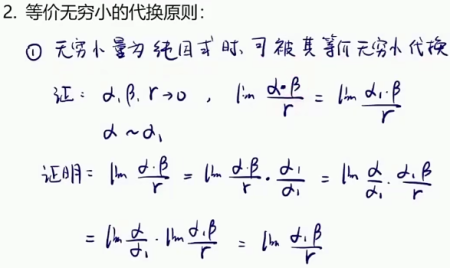 2. 等价无穷小的代换原则:
① 无穷小量为纯因式时、可被其等价无穷小代换
证: α, β, r→0 , lim α·β/r = lim α₁·β/r
α ~ α₁
证明: lim α·β/r = lim α·β/r · α₁/α₁ = lim α/α₁ · α₁β/r
= lim α/α₁ · lim α₁β/r = lim α₁β/r